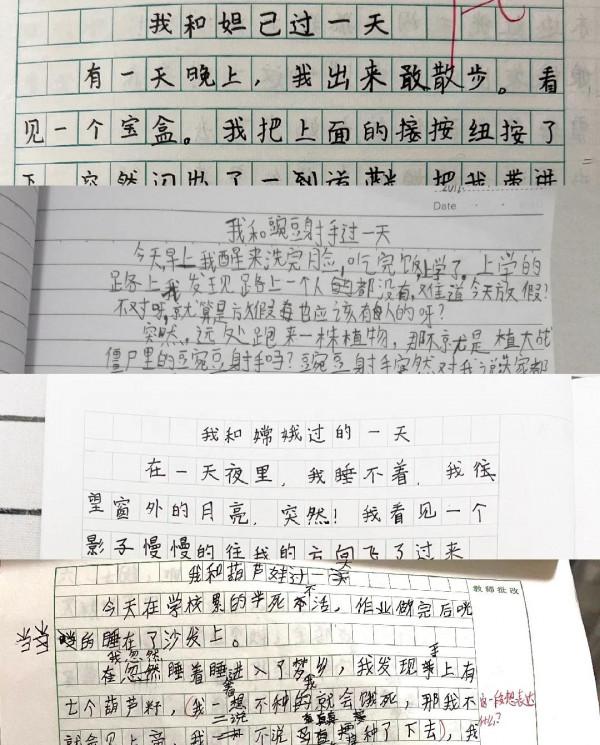 我和妲己过一天
有一天晚上，我出来敢散步。看
见一个宝盒。我把上面的接按纽按了
下，突然闪出了一到道
Date
我和豌豆射手过一天
今天早上我醒来洗完脸，吃完饭上学了。上学的
路上我发现路上一个人都没有，难道今天放假？
不对呀，就算是放假也应该有人的呀？
突然，远处跑来一株植物，那不就是植大战
僵尸里的豌豆射手吗？豌豆射手突然对我说
我和嫦娥过的一天
在一天夜里，我睡不着，我往
望窗外的月亮，突然！我看见一个
影子慢慢的往我的方向飞了过来
我和葫芦娃过一天
教师批改
今天在学校累的半死不活，作业做完后
的睡在了沙发上。
我忽然睡着睡进入了梦乡，我发现手上有
七个葫芦籽，我一想不种的就会饿死，那我不
这一段想表达
什么？